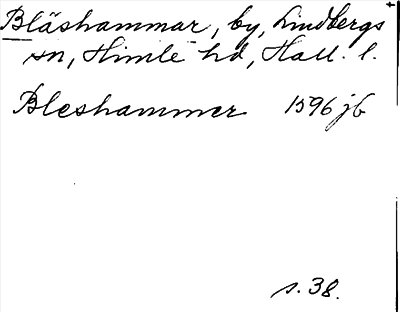 Blåshammar, by, Lindbergs
sn, Himle hd, Hall. l.
Bleshammer 1596 jb
s. 38.